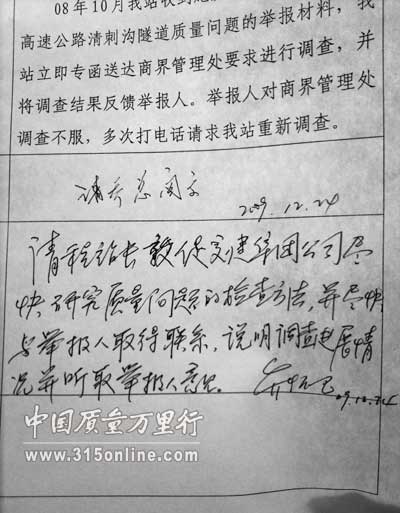 08年10月我站收到
高速公路清刺沟隧道质量问题的举报材料，我
站立即专函送达商界管理处要求进行调查，并
将调查结果反馈举报人。举报人对商界管理处
调查不服，多次打电话请求我站重新调查。
请 总阅示
2009.12.24
请程站长敦促交建集团公司尽
快研究质量问题的检查方法，并尽快
与举报人取得联系，说明调查进展情
况并听取举报人意见。
09.12.24
中国质量万里行
www.315online.com